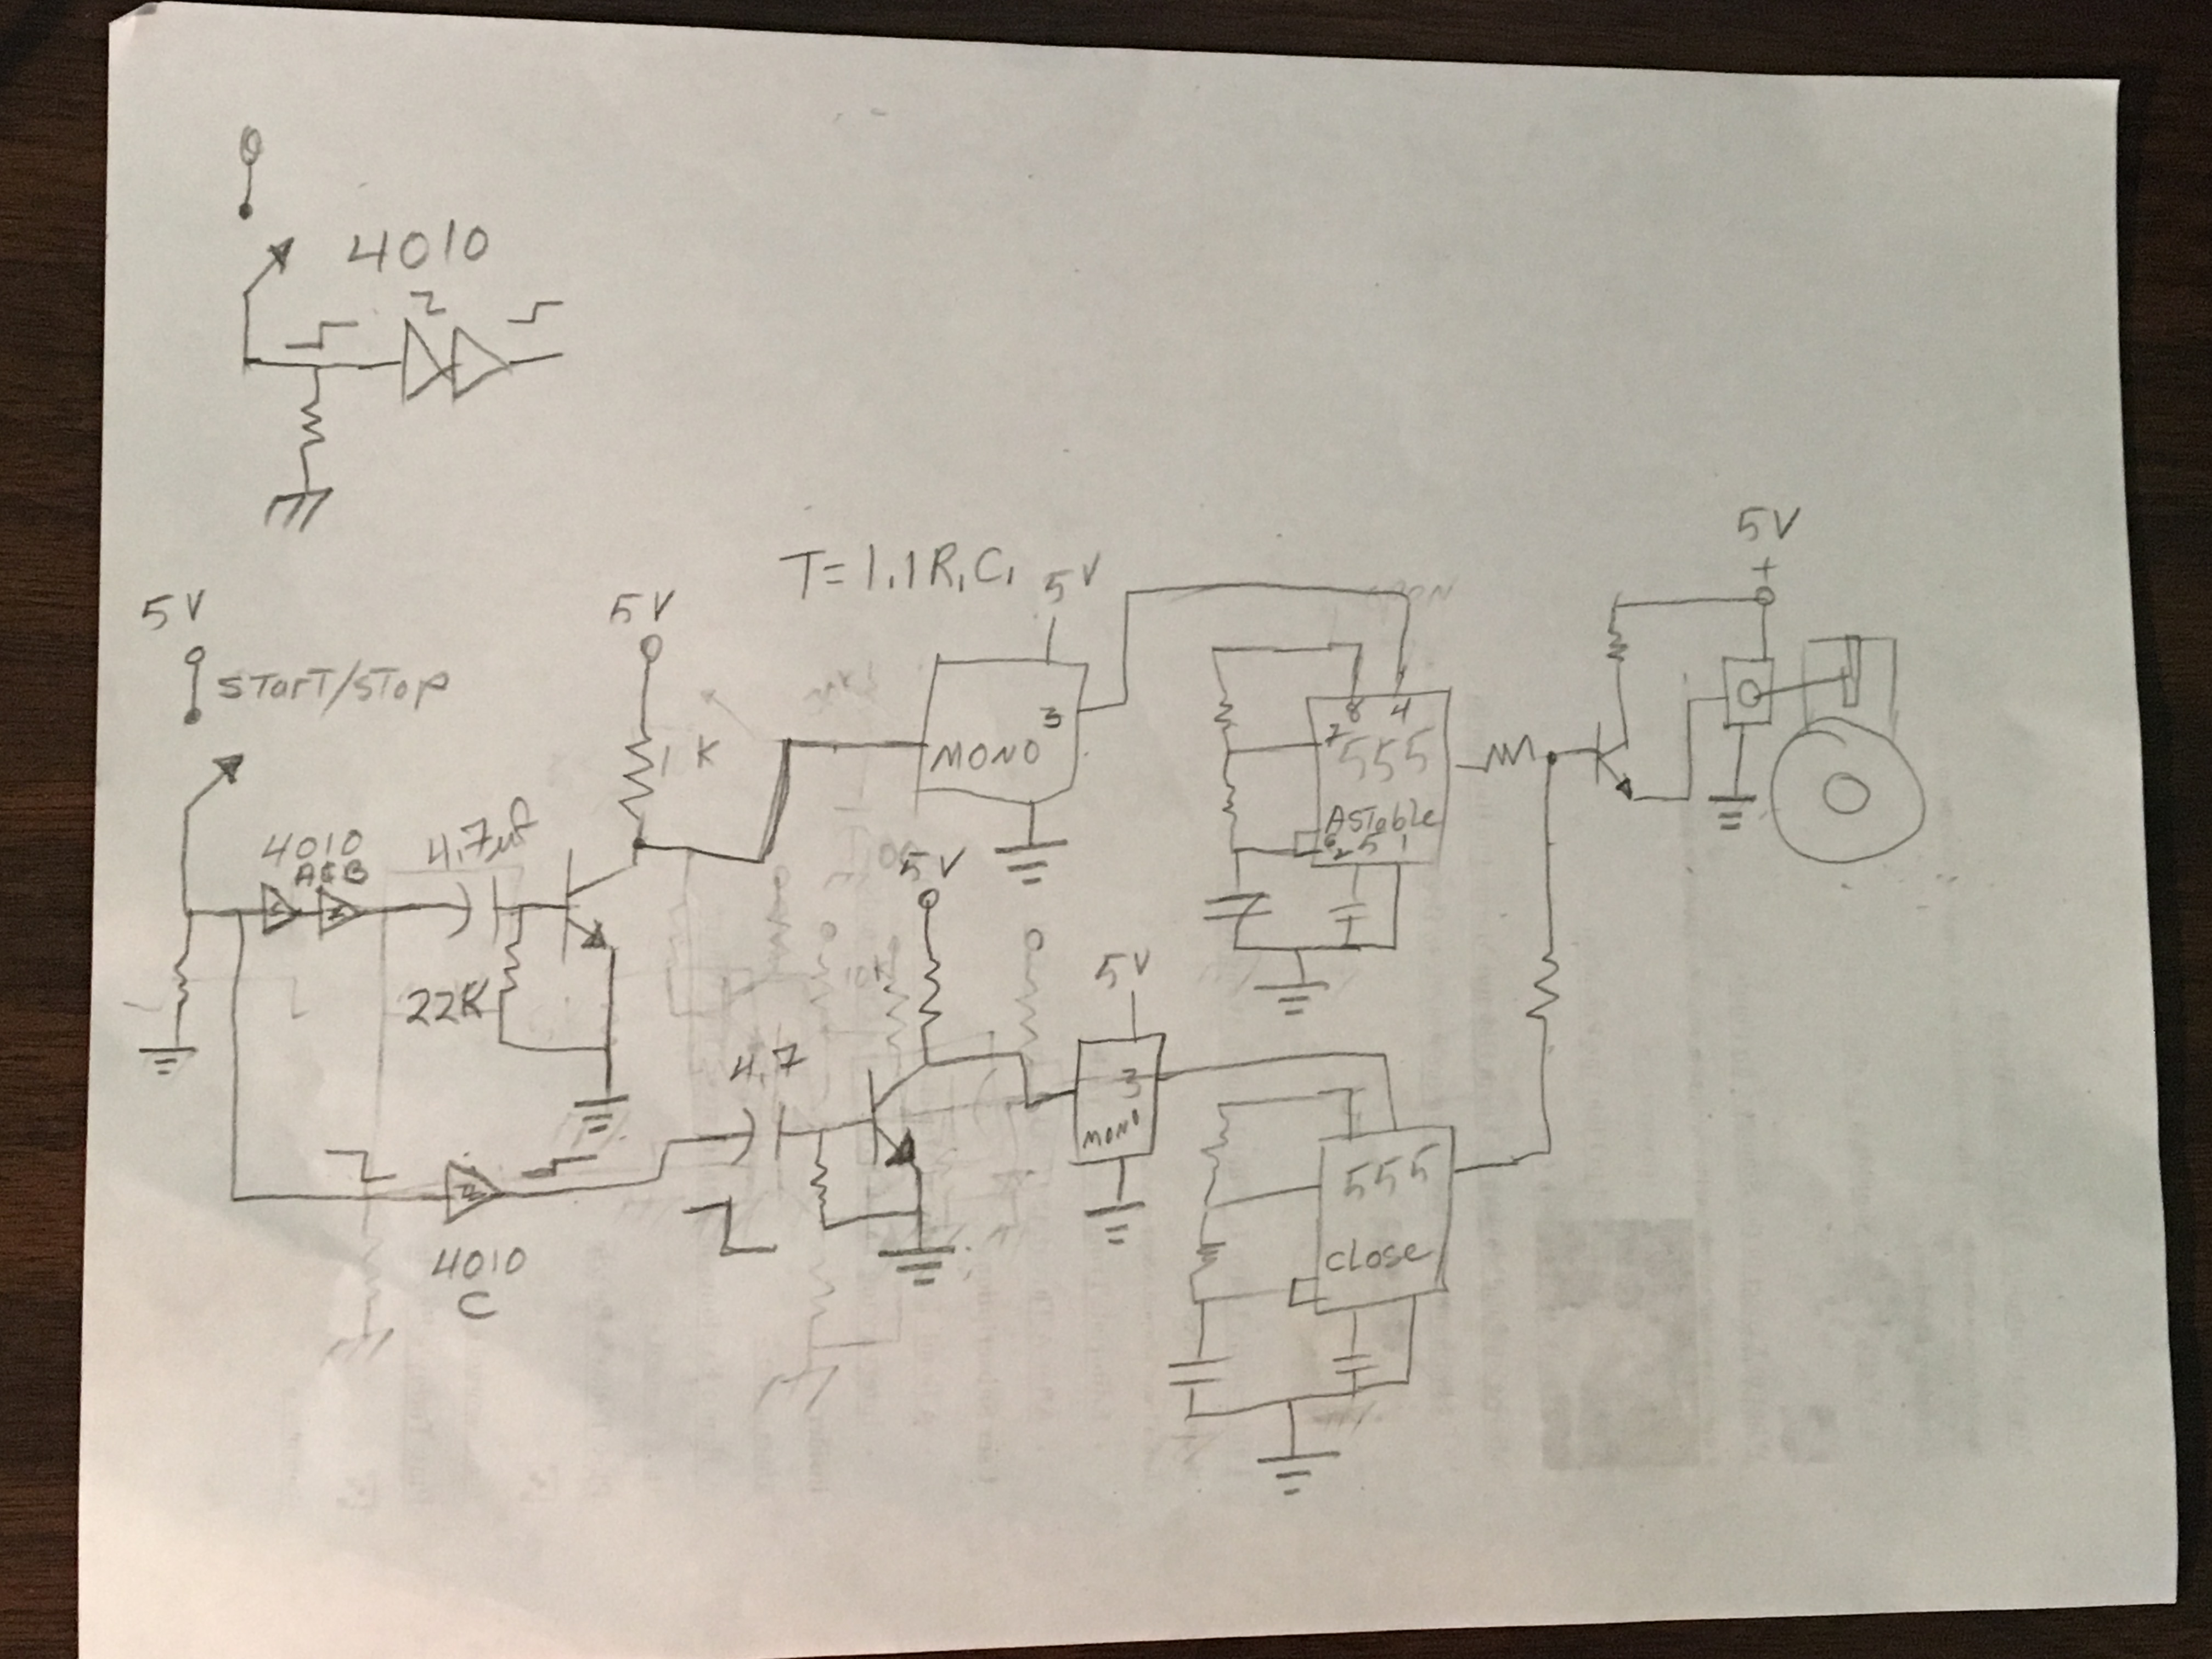 4010
5V
T=1.1R1C1
5V
5V
5V
+
START/STOP
1K
MONO
3
8 4
7
555
Astable
6 2 5 1
4010
A&B
4.7uf
5V
22K
10K
5V
4.7
3
MONO
555
close
4010
C